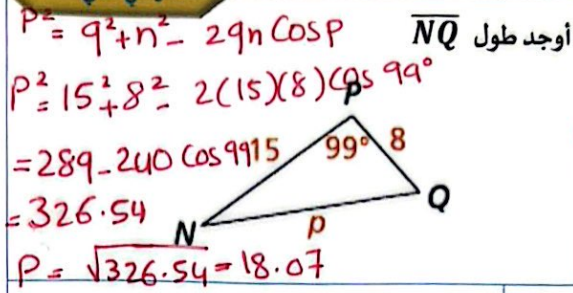 أوجد طول NQ
P² = q² + n² - 2qn Cos P
P² = 15² + 8² - 2(15)(8) Cos 99°
= 289 - 240 Cos 99
= 326.54
P = √326.54 = 18.07
P
15 99° 8
N Q
p